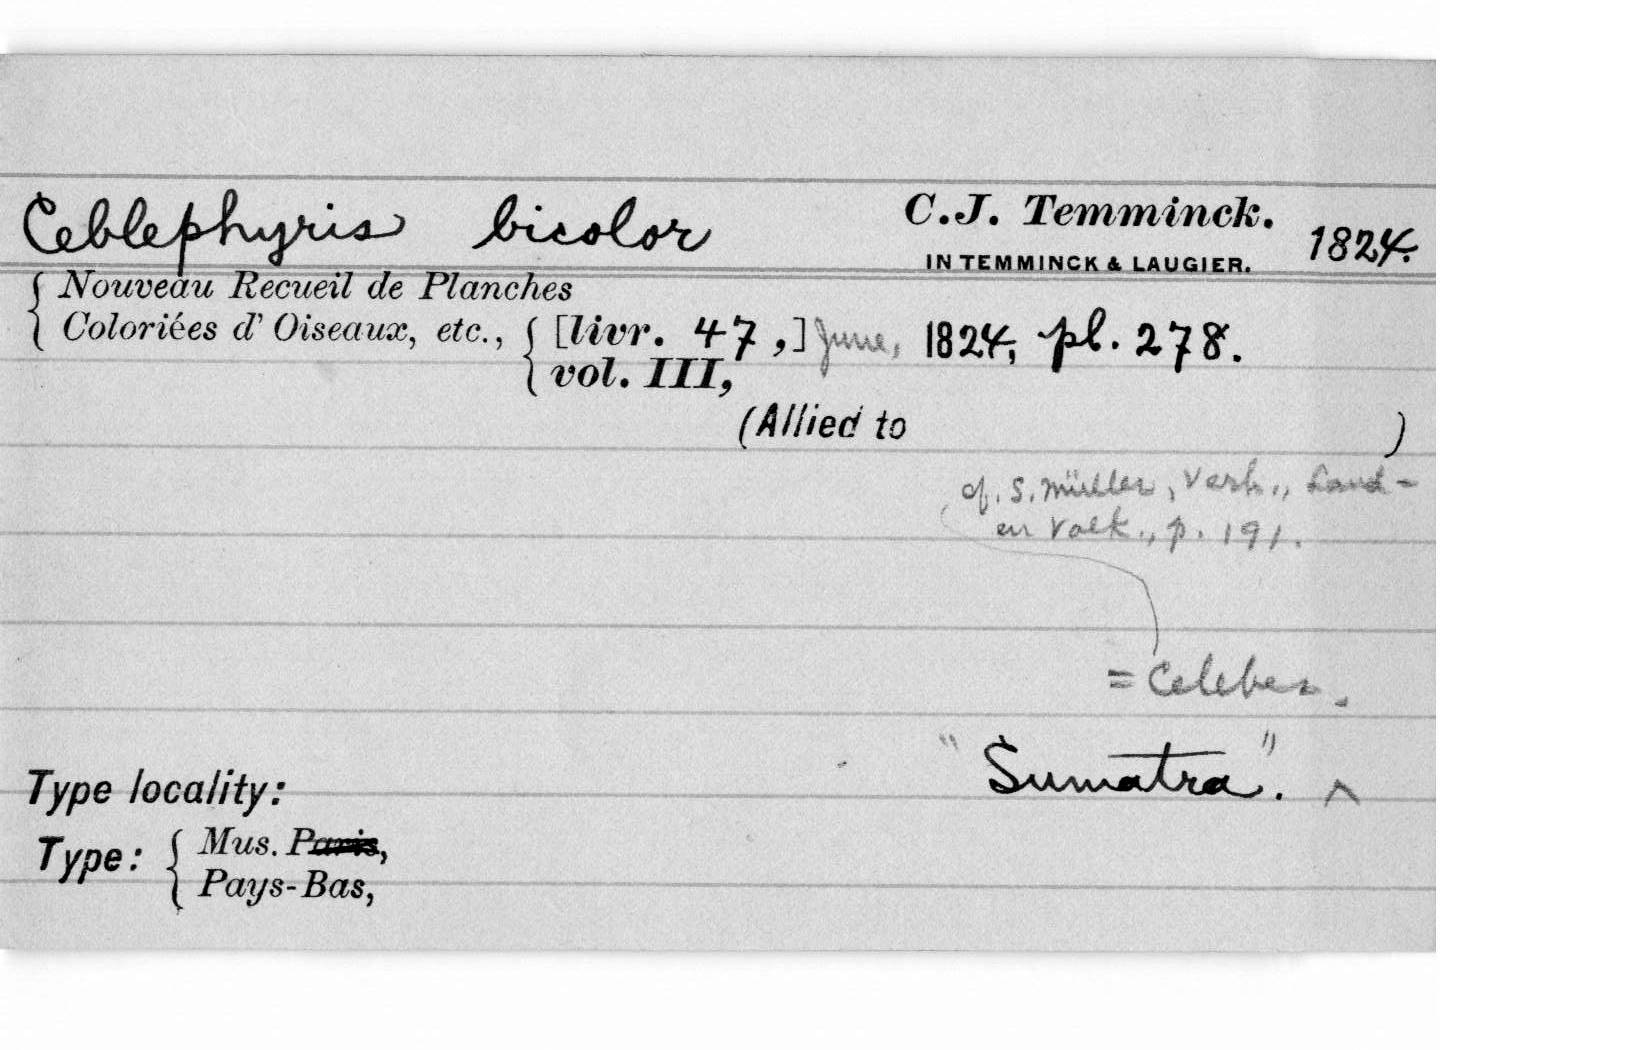 Ceblephyris bicolor C.J. Temminck. 1824.
IN TEMMINCK & LAUGIER.
Nouveau Recueil de Planches
Coloriées d' Oiseaux, etc., [livr. 47,] June, 1824, pl. 278.
vol. III,
(Allied to )
cf. S. Müller, Verh., Land-
en Volk., p. 191.
= Celebes.
Type locality: "Sumatra". ^
Type: Mus. Paris,
Pays-Bas,